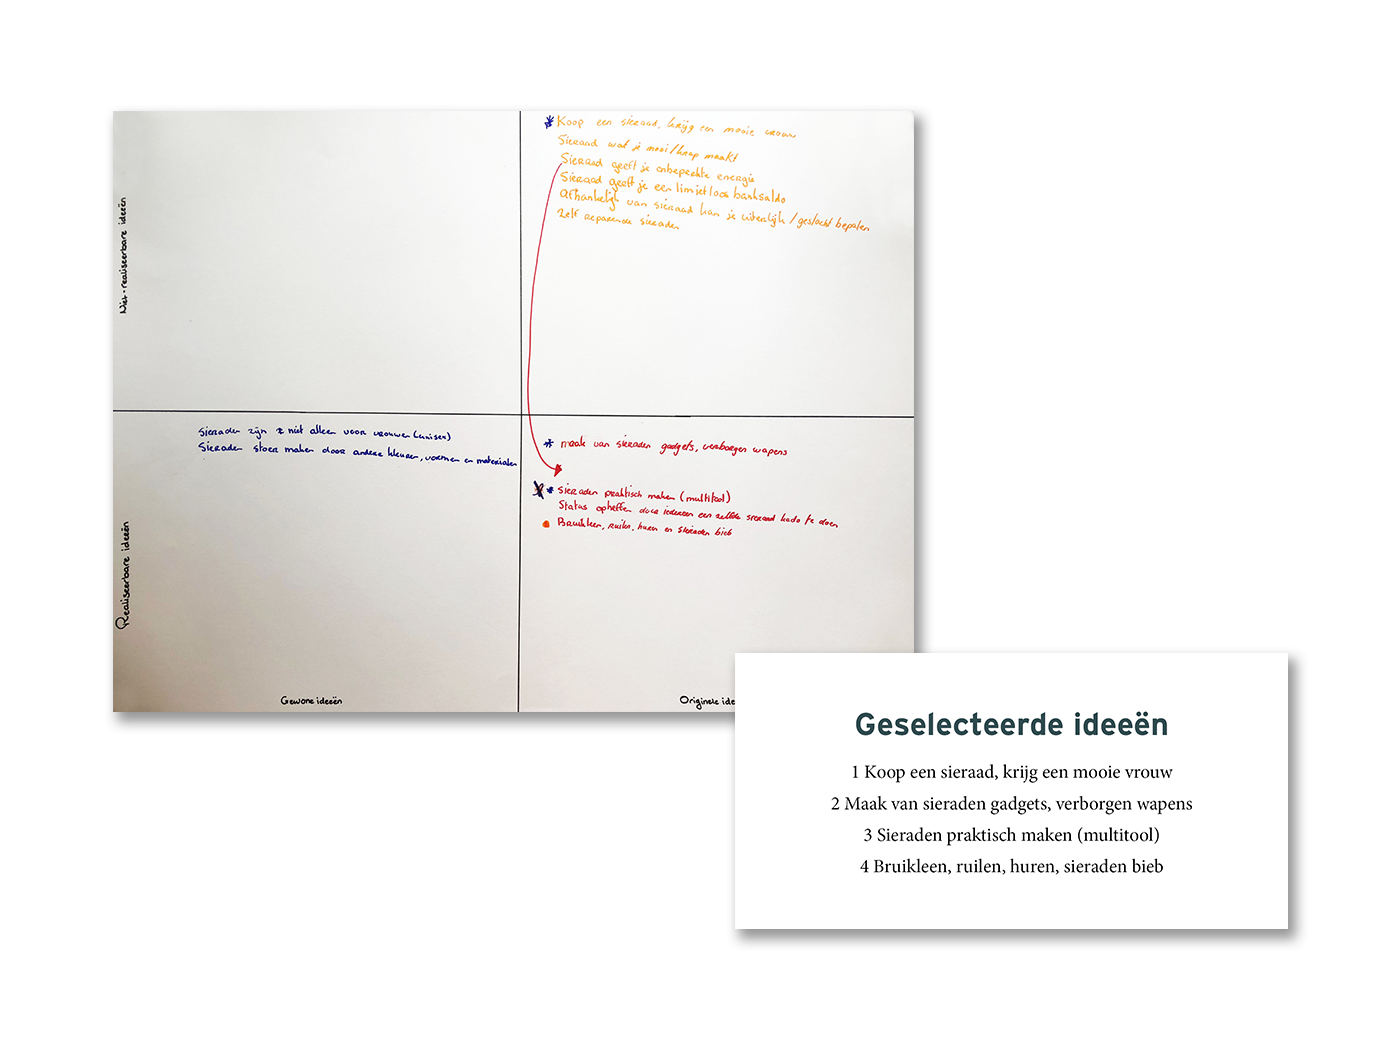 Niet-realiseerbare ideeën
Koop een sieraad, krijg een mooie vrouw
Sieraad wat je mooi/knap maakt
Sieraad geeft je onbeperkte energie
Sieraad geeft je een limietloos banksaldo
Afhankelijk van sieraad kan je uiterlijk/geslacht bepalen
Zelf reparende sieraden
Sieraden zijn niet alleen voor vrouwen (unisex)
Sieraden stoer maken door andere kleuren, vormen en materialen
maak van sieraden gadgets, verborgen wapens
Sieraden praktisch maken (multitool)
Status opheffen door iedereen een zelfde sieraad kado te doen
Bruikleen, ruilen, huren en sieraden bieb
Realiseerbare ideeën
Gewone ideeën
Originele idee
Geselecteerde ideeën
1 Koop een sieraad, krijg een mooie vrouw
2 Maak van sieraden gadgets, verborgen wapens
3 Sieraden praktisch maken (multitool)
4 Bruikleen, ruilen, huren, sieraden bieb